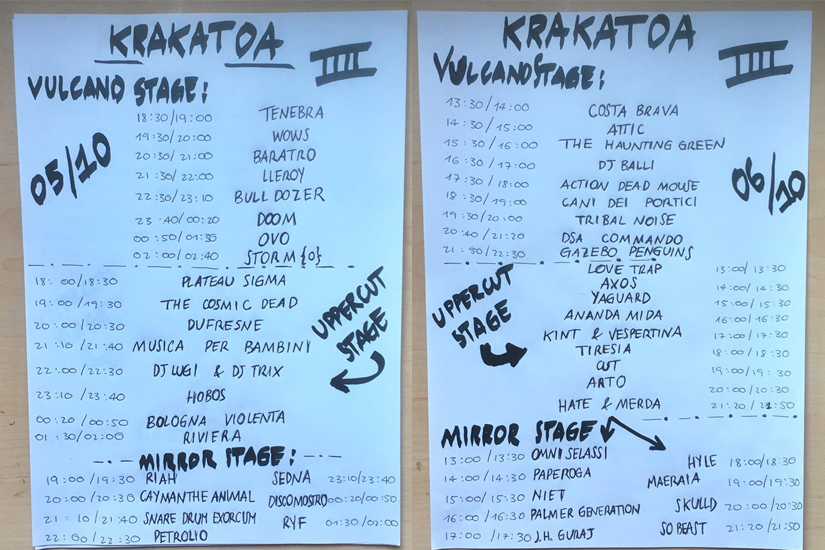 KRAKATOA
IIII
VULCANO STAGE:
05/10
18:30/19:00 TENEBRA
19:30/20:00 WOWS
20:30/21:00 BARATRO
21:30/22:00 LLEROY
22:30/23:10 BULL DOZER
23:40/00:20 DOOM
00:50/01:30 OVO
02:00/02:40 STORM{0}
UPPERCUT STAGE
18:00/18:30 PLATEAU SIGMA
19:00/19:30 THE COSMIC DEAD
20:00/20:30 DUFRESNE
21:10/21:40 MUSICA PER BAMBINI
22:00/22:30 DJ LUGI & DJ TRIX
23:10/23:40 HOBOS
00:20/00:50 BOLOGNA VIOLENTA
01:30/02:00 RIVIERA
MIRROR STAGE:
19:00/19:30 RIAH SEDNA 23:10/23:40
20:00/20:30 CAYMANTHE ANIMAL DISCOMOSTRO 00:20/00:50
21:10/21:40 SNARE DRUM EXORCUM RYF 01:30/02:00
22:00/22:30 PETROLIO
KRAKATOA
IIII
VULCANO STAGE:
06/10
13:30/14:00 COSTA BRAVA
14:30/15:00 ATTIC
15:30/16:00 THE HAUNTING GREEN
16:30/17:00 DJ BALLI
17:30/18:00 ACTION DEAD MOUSE
18:30/19:00 CANI DEI PORTICI
19:30/20:00 TRIBAL NOISE
20:40/21:20 DSA COMMANDO
21:50/22:30 GAZEBO PENGUINS
UPPERCUT STAGE
LOVE TRAP 13:00/13:30
AXOS 14:00/14:30
YAGUARD 15:00/15:30
ANANDA MIDA 16:00/16:30
KINT & VESPERTINA 17:00/17:30
TIRESIA 18:00/18:30
CUT 19:00/19:30
ARTO 20:00/20:30
HATE & MERDA 21:20/21:50
MIRROR STAGE
13:00/13:30 OMNI SELASSI HYLE 18:00/18:30
14:00/14:30 PAPEROGA MAERAIA 19:00/19:30
15:00/15:30 NIET SKULLD 20:00/20:30
16:00/16:30 PALMER GENERATION SO BEAST 21:20/21:50
17:00/17:30 J.H. GURAJ